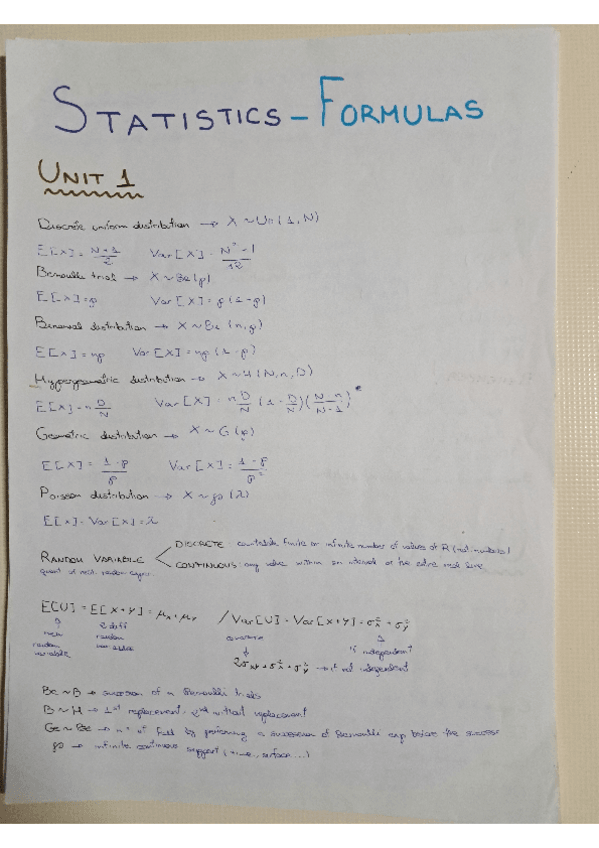 STATISTICS - FORMULAS
UNIT 1
Discrete uniform distribution → X ~ Un(1, N)
E[X] = N+1/2 Var[X] = N²-1/12
Bernoulli trial → X ~ Be(p)
E[X] = p Var[X] = p(1-p)
Binomial distribution → X ~ Bi(n,p)
E[X] = np Var[X] = np(1-p)
Hypergeometric distribution → X ~ H(N,n,D)
E[X] = n D/N Var[X] = n D/N (1 - D/N)(N-n/N-1)
Geometric distribution → X ~ G(p)
E[X] = 1-p/p Var[X] = 1-p/p²
Poisson distribution → X ~ p(λ)
E[X] = Var[X] = λ
DISCRETE: countable finite or infinite number of values of R (nat. numbers)
RANDOM VARIABLE
CONTINUOUS: any value within an interval or the entire real line
quant. of random exper.
E[U] = E[X+Y] = μx + μy / Var[U] = Var[X+Y] = σ²x + σ²y
new random variable
2 diff random variables
covariance
if independent
2σxy + σ²x + σ²y → if not independent
Be ~ B → succession of n Bernoulli trials
B ~ H → 1st replacement, 2nd without replacement
Ge ~ Be → nº of fails by performing a succession of Bernoulli exp before the success
p → infinite continuous support (time, surface...)